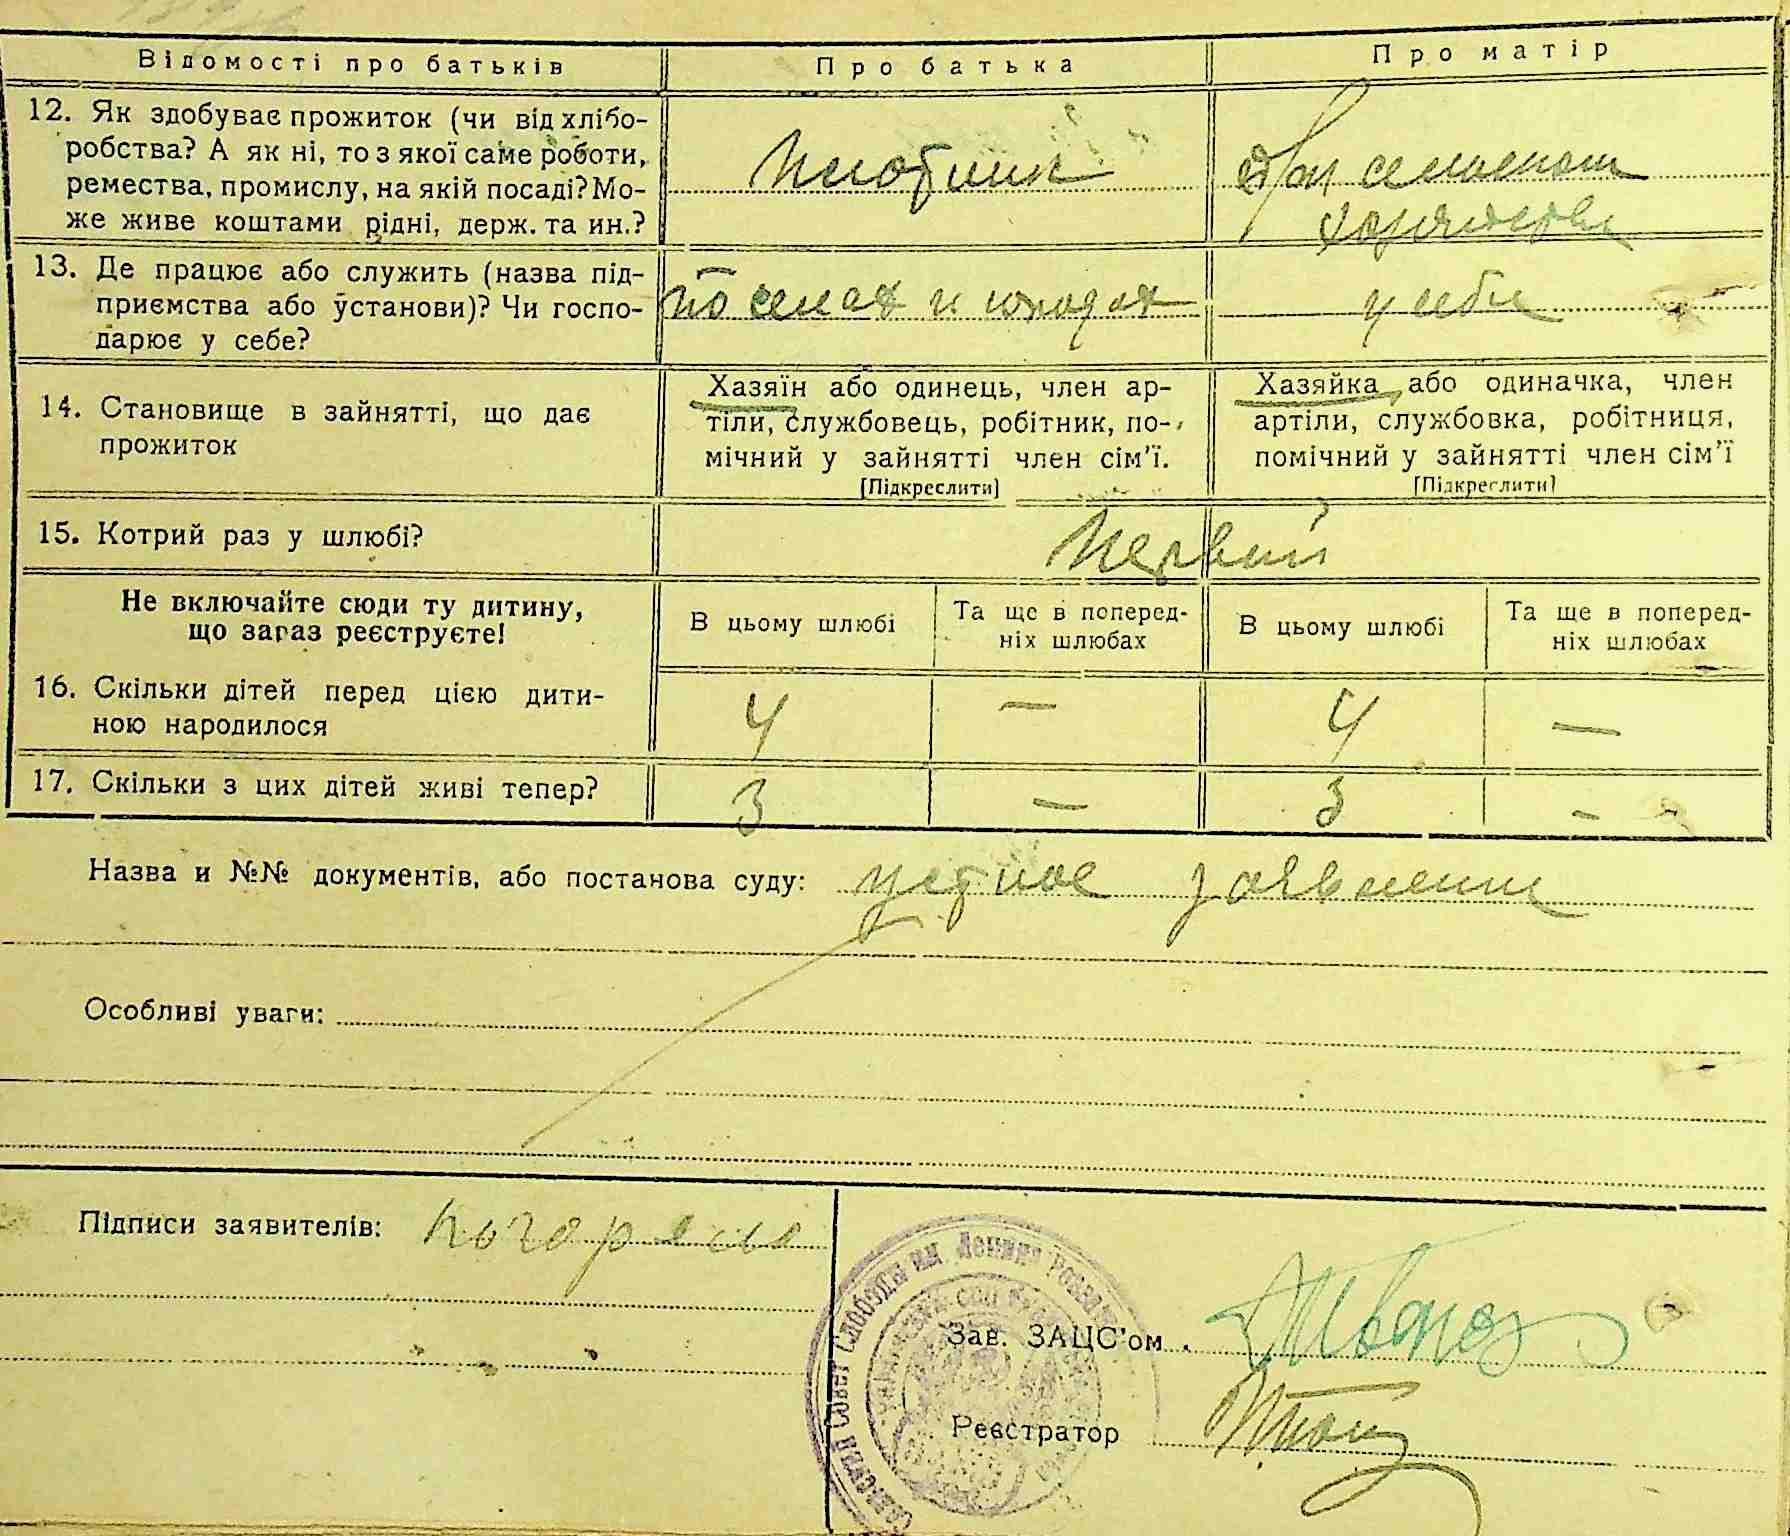 Відомості про батьків
Про батька
Про матір
12. Як здобуває прожиток (чи від хлібо-
робства? А як ні, то з якої саме роботи,
ремества, промислу, на якій посаді? Мо-
же живе коштами рідні, держ. та ин.?
при сельском
хозяйстве
13. Де працює або служить (назва під-
приємства або установи)? Чи госпо-
дарює у себе?
по селах и городах
у себе
14. Становище в зайнятті, що дає
прожиток
Хазяїн або одинець, член ар-
тіли, службовець, робітник, по-
мічний у зайнятті член сім'ї.
[Підкреслити]
Хазяйка або одиначка, член
артіли, службовка, робітниця,
помічний у зайнятті член сім'ї
[Підкреслити]
15. Котрий раз у шлюбі?
Первий
Не включайте сюди ту дитину,
що зараз реєструєте!
В цьому шлюбі
Та ще в поперед-
ніх шлюбах
В цьому шлюбі
Та ще в поперед-
ніх шлюбах
16. Скільки дітей перед цією дити-
ною народилося
4 — 4 —
17. Скільки з цих дітей живі тепер?
3 — 3 —
Назва и №№ документів, або постанова суду: устное заявление
Особливі уваги:
Підписи заявителів: Погорело
Зав. ЗАЦС'ом
Реєстратор
Совет Слободы им. Ленина